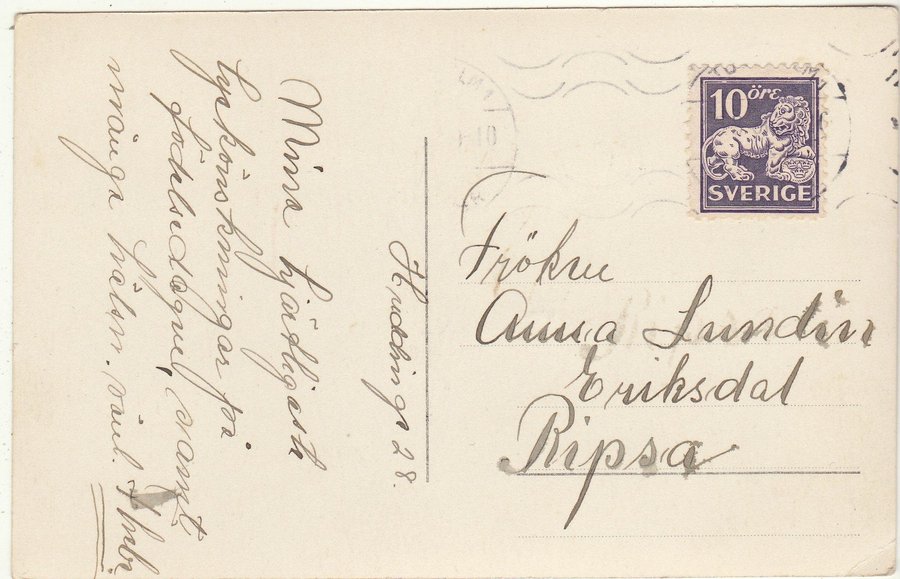 Huddinge 28.
Mina hjärtligaste
lyckönskningar på
födelsedagen, samt
många hälsn. vänl.
10 öre
SVERIGE
Fröken
Anna Lundin
Eriksdal
Ripsa